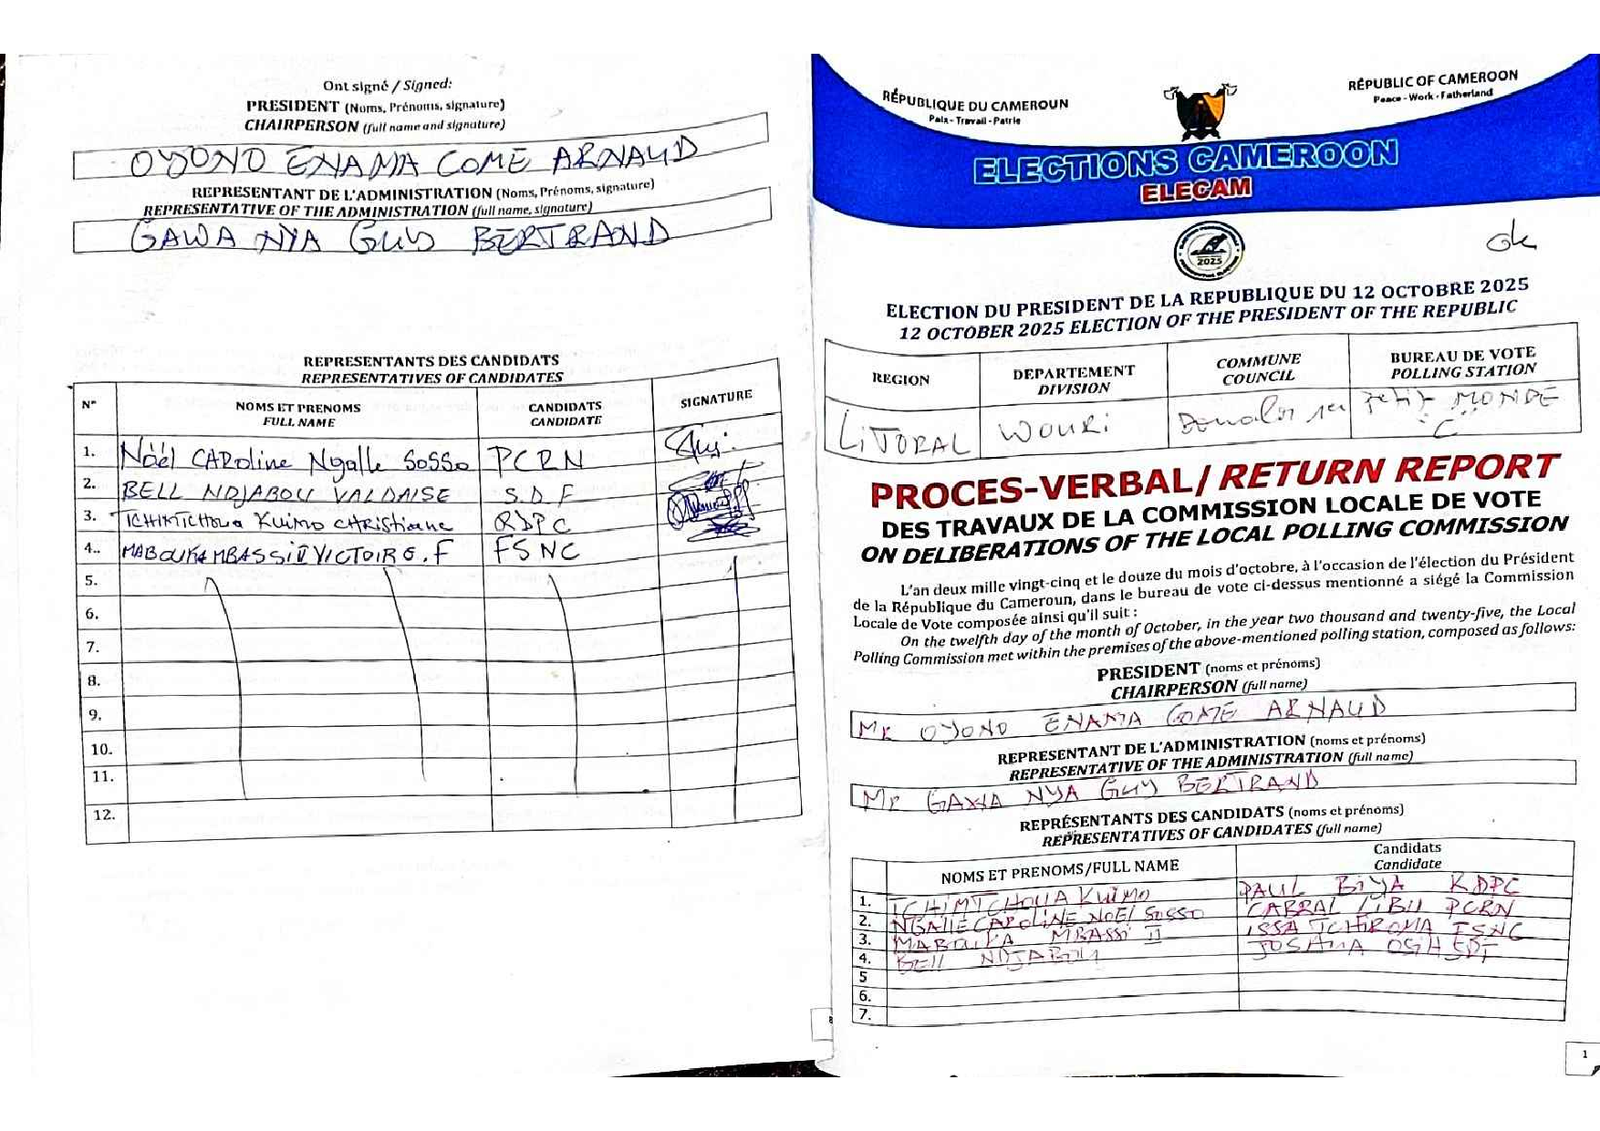 Ont signé / Signed:
PRESIDENT (Noms, Prénoms, signature)
CHAIRPERSON (full name and signature)
OYONO ENAMA COME ARNAUD
REPRESENTANT DE L'ADMINISTRATION (Noms, Prénoms, signature)
REPRESENTATIVE OF THE ADMINISTRATION (full name, signature)
GAWA NYA GUY BERTRAND
REPRESENTANTS DES CANDIDATS
REPRESENTATIVES OF CANDIDATES
N° NOMS ET PRENOMS CANDIDATS SIGNATURE
FULL NAME CANDIDATE
1. Noël CAROline Ngalle SOSSO PCRN
2. BELL NDJABOU VALDAISE S.D.F
3. TCHIMTCHOUA KUIMO CHRistiane RDPC
4.. MABOUKA MBASSI II VICTOIRE.F FSNC
5.
6.
7.
8.
9.
10.
11.
12.
8
RÉPUBLIQUE DU CAMEROUN
Paix - Travail - Patrie
RÉPUBLIC OF CAMEROON
Peace - Work - Fatherland
ELECTIONS CAMEROON
ELECAM
2025
ok
ELECTION DU PRESIDENT DE LA REPUBLIQUE DU 12 OCTOBRE 2025
12 OCTOBER 2025 ELECTION OF THE PRESIDENT OF THE REPUBLIC
REGION DEPARTEMENT DIVISION COMMUNE COUNCIL BUREAU DE VOTE POLLING STATION
LITORAL WOURI Douala 1er Petit MONDE
C
PROCES-VERBAL/ RETURN REPORT
DES TRAVAUX DE LA COMMISSION LOCALE DE VOTE
ON DELIBERATIONS OF THE LOCAL POLLING COMMISSION
L'an deux mille vingt-cinq et le douze du mois d'octobre, à l'occasion de l'élection du Président
de la République du Cameroun, dans le bureau de vote ci-dessus mentionné a siégé la Commission
Locale de Vote composée ainsi qu'il suit :
On the twelfth day of the month of October, in the year two thousand and twenty-five, the Local
Polling Commission met within the premises of the above-mentioned polling station, composed as follows:
PRESIDENT (noms et prénoms)
CHAIRPERSON (full name)
Mr OYONO ENAMA COME ARNAUD
REPRESENTANT DE L'ADMINISTRATION (noms et prénoms)
REPRESENTATIVE OF THE ADMINISTRATION (full name)
Mr GAWA NYA GUY BERTRAND
REPRÉSENTANTS DES CANDIDATS (noms et prénoms)
REPRESENTATIVES OF CANDIDATES (full name)
NOMS ET PRENOMS/FULL NAME Candidats
Candidate
1. TCHIMTCHOUA KUIMO PAUL BIYA RDPC
2. NGALLE CAROLINE NOEL SOSSO CABRAL LIBII PCRN
3. MABOUKA MBASSI II ISSA TCHIROMA FSNC
4. BELL NDJABOU JOSHUA OSIH SDF
5
6.
7.
1